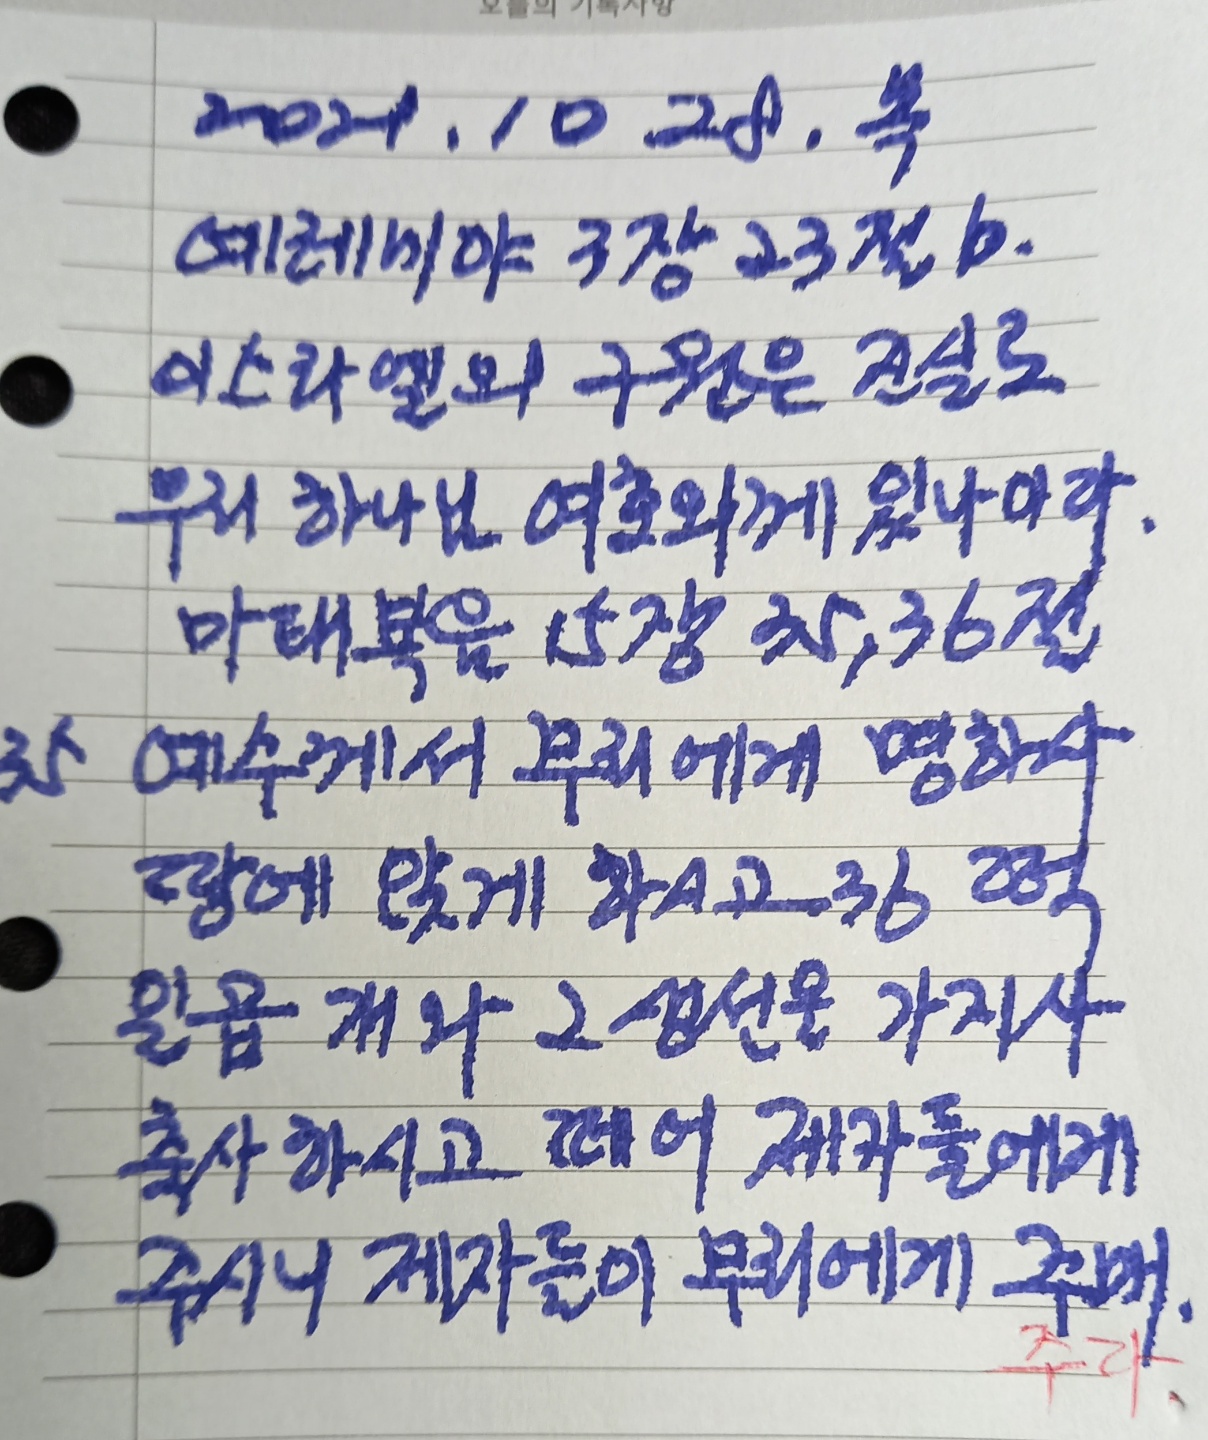 오늘의 기록사항
2021.10 28. 목
예레미야 3장 23절 b.
이스라엘의 구원은 진실로
우리 하나님 여호와께 있나이다.
마태복음 15장 35,36절
35 예수께서 무리에게 명하사
땅에 앉게 하시고 36 떡
일곱 개와 그 생선을 가지사
축사 하시고 떼어 제자들에게
주시니 제자들이 무리에게 주매.
주라.